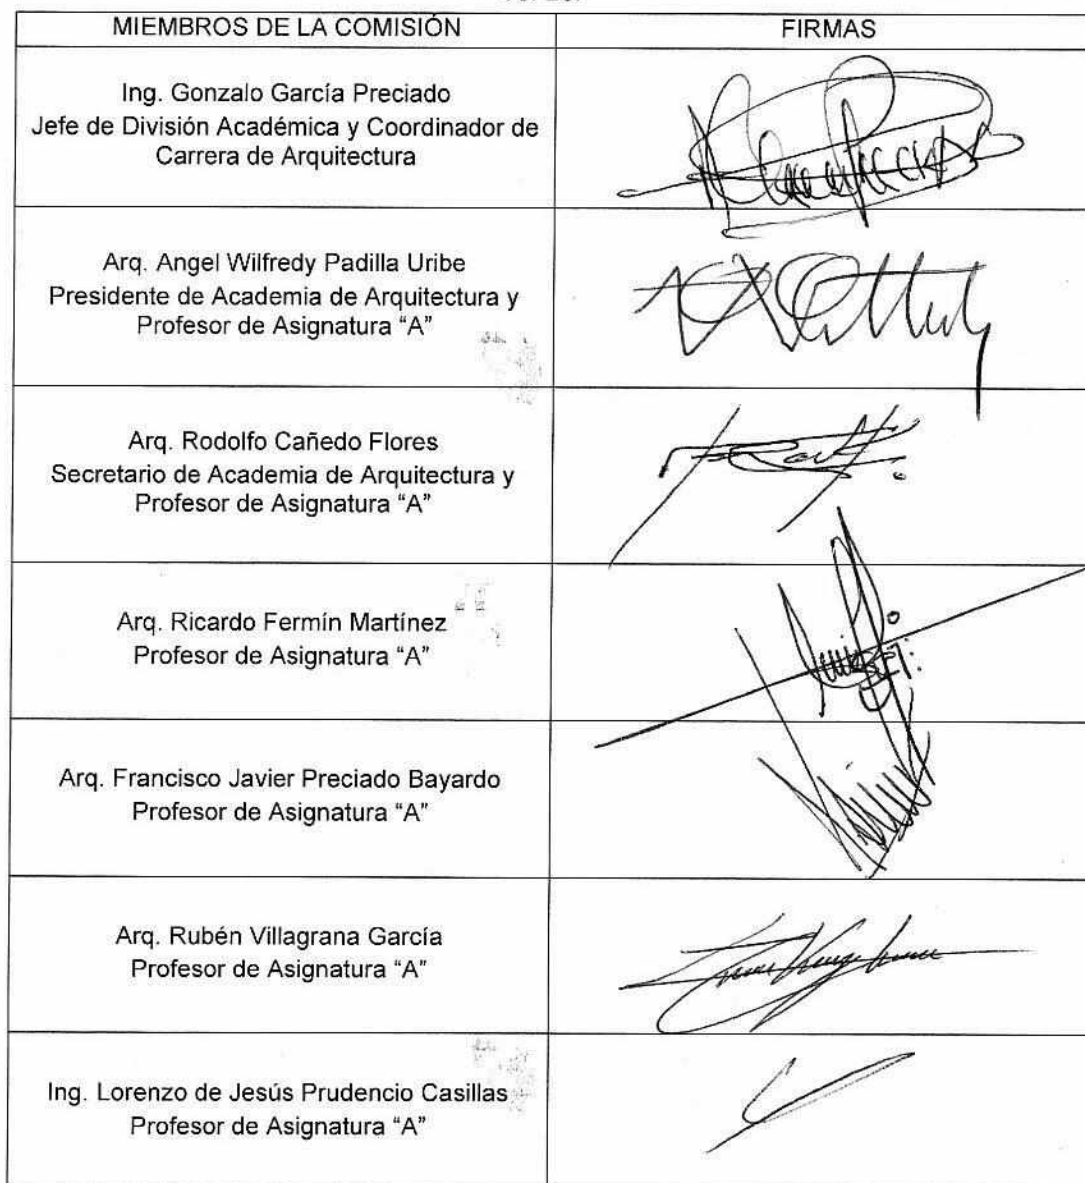 MIEMBROS DE LA COMISIÓN
FIRMAS
Ing. Gonzalo García Preciado
Jefe de División Académica y Coordinador de
Carrera de Arquitectura
Arq. Angel Wilfredy Padilla Uribe
Presidente de Academia de Arquitectura y
Profesor de Asignatura “A”
Arq. Rodolfo Cañedo Flores
Secretario de Academia de Arquitectura y
Profesor de Asignatura “A”
Arq. Ricardo Fermín Martínez
Profesor de Asignatura “A”
Arq. Francisco Javier Preciado Bayardo
Profesor de Asignatura “A”
Arq. Rubén Villagrana García
Profesor de Asignatura “A”
Ing. Lorenzo de Jesús Prudencio Casillas
Profesor de Asignatura “A”